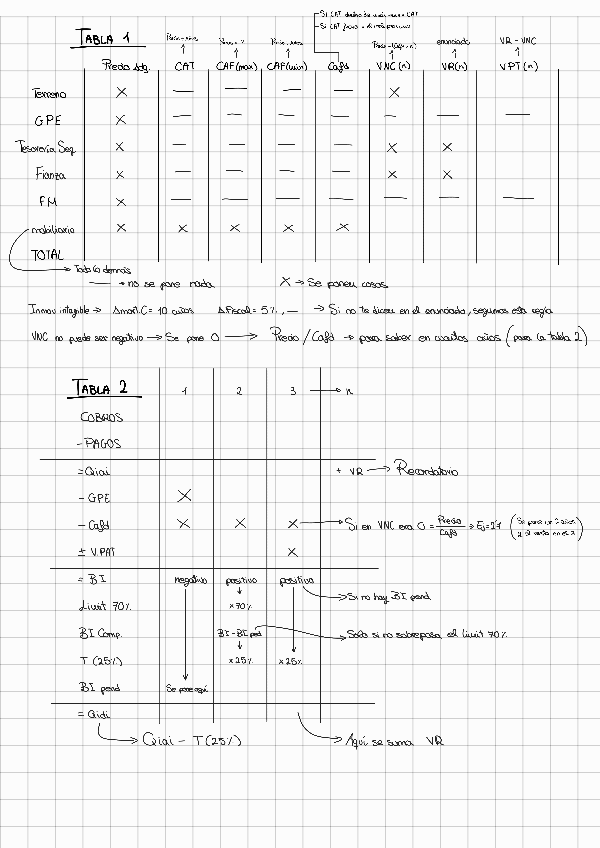 - Si CAT dentro de CAT
- Si CAT fuera
TABLA 1
enunciado
VR - VNC
Precio Adq. CAT CAF(max) CAF(min) Cafd VNC(n) VR(n) VPT(n)
Terreno X — — — — X
GPE X — — — — — — —
Tesorería Seg X — — — — X X
Fianza X — — — — X X
FM X — — — — — — —
mobiliario X X X X X
TOTAL
→ Todo lo demás
— → no se pone nada X → Se ponen cosas
Inmov intagible → Amort.C = 10 años A Fiscal = 5%, — → Si no te dicen en el enunciado, seguimos esta regla
VNC no puede ser negativo → Se pone 0 → Precio / Cafd → para saber en cuantos años (para la tabla 2)
TABLA 2 1 2 3 → n
COBROS
- PAGOS
= Qiai + VR → Recordatorio
- GPE X
- Cafd X X X → Si en VNC era 0 = Precio/Cafd → Ej = 2'7
± V.PAT X
= BI negativo positivo positivo
→ Si no hay BI pend
Limit 70% x70%
BI Comp. BI - BI pend → Solo si no sobrepasa el limit 70%
T (25%) x25% x25%
BI pend Se pone aquí
= Qidi
→ Qiai - T(25%) → Aquí se suma VR